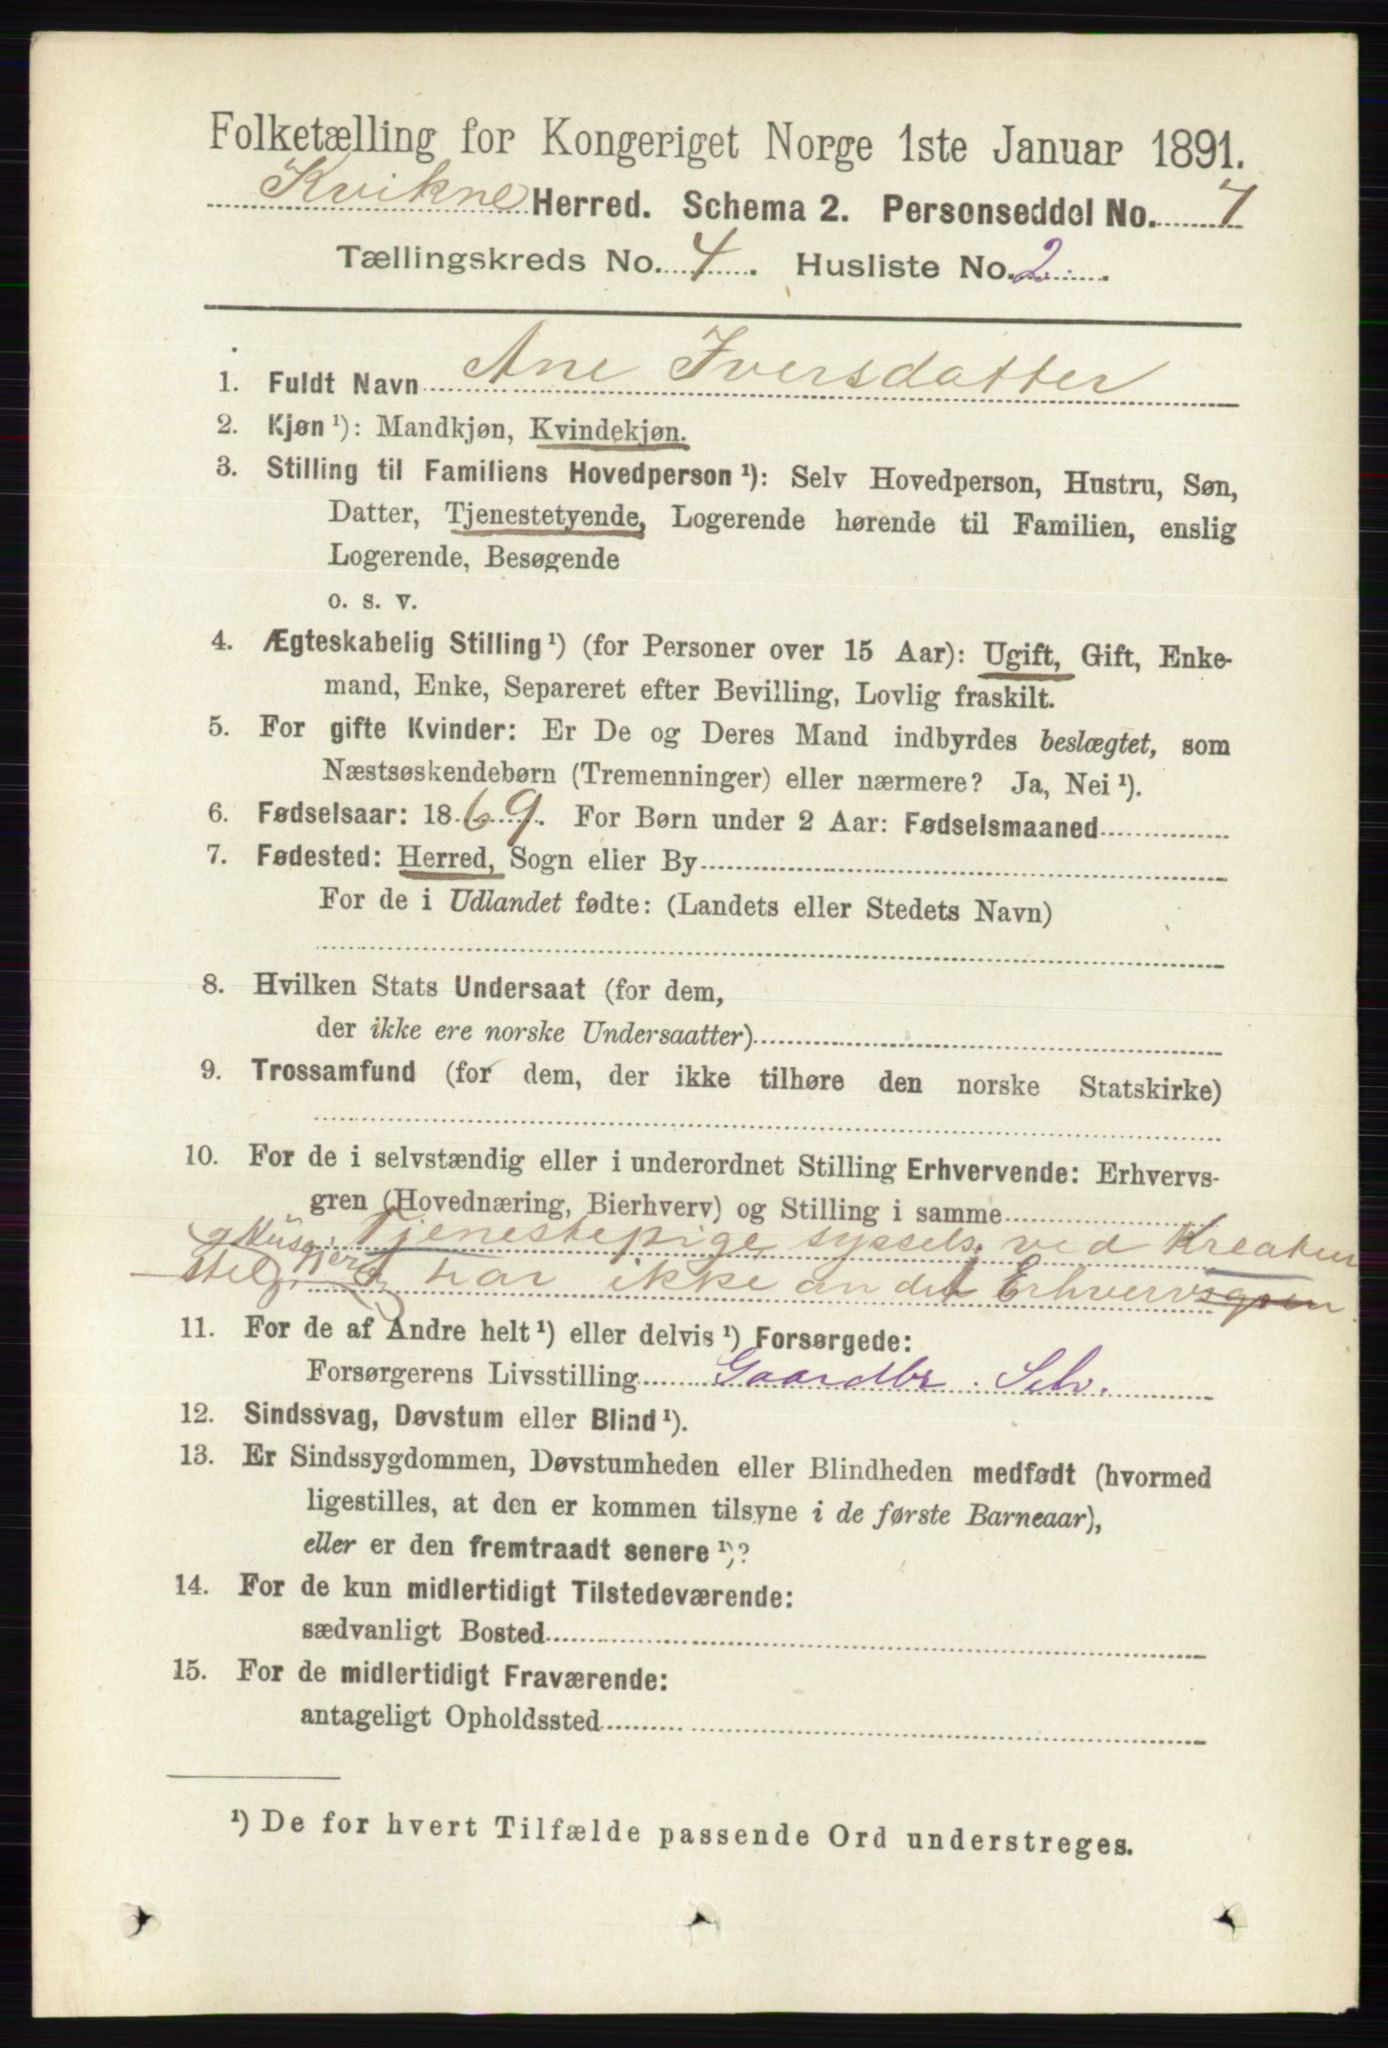 Folketælling for Kongeriget Norge 1ste Januar 1891.
Kvikne Herred. Schema 2. Personseddel No. 7
Tællingskreds No. 4. Husliste No. 2.
1. Fuldt Navn Ane Iversdatter
2. Kjøn ¹): Mandkjøn, Kvindekjøn.
3. Stilling til Familiens Hovedperson ¹): Selv Hovedperson, Hustru, Søn,
Datter, Tjenestetyende, Logerende hørende til Familien, enslig
Logerende, Besøgende
o. s. v.
4. Ægteskabelig Stilling ¹) (for Personer over 15 Aar): Ugift, Gift, Enke-
mand, Enke, Separeret efter Bevilling, Lovlig fraskilt.
5. For gifte Kvinder: Er De og Deres Mand indbyrdes beslægtet, som
Næstsøskendebørn (Tremenninger) eller nærmere? Ja, Nei ¹).
6. Fødselsaar: 1869. For Børn under 2 Aar: Fødselsmaaned
7. Fødested: Herred, Sogn eller By
For de i Udlandet fødte: (Landets eller Stedets Navn)
8. Hvilken Stats Undersaat (for dem,
der ikke ere norske Undersaatter)
9. Trossamfund (for dem, der ikke tilhøre den norske Statskirke)
10. For de i selvstændig eller i underordnet Stilling Erhvervende: Erhvervs-
gren (Hovednæring, Bierhverv) og Stilling i samme
Tjenestepige syssels. ved Kreatur
stel har ikke andet Erhvervsgren
11. For de af Andre helt ¹) eller delvis ¹) Forsørgede:
Forsørgerens Livsstilling Gaardbr. Selv.
12. Sindssvag, Døvstum eller Blind ¹).
13. Er Sindssygdommen, Døvstumheden eller Blindheden medfødt (hvormed
ligestilles, at den er kommen tilsyne i de første Barneaar),
eller er den fremtraadt senere ¹)?
14. For de kun midlertidigt Tilstedeværende:
sædvanligt Bosted
15. For de midlertidigt Fraværende:
antageligt Opholdssted
¹) De for hvert Tilfælde passende Ord understreges.